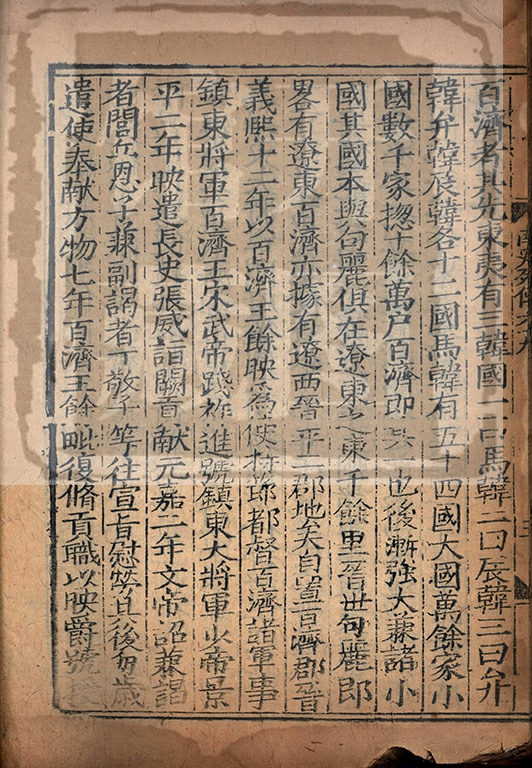 百濟者其先東夷有三韓國一曰馬韓二曰辰韓三曰弁
韓弁韓辰韓各十二國馬韓有五十四國大國萬餘家小
國數千家揔十餘萬户百濟即其一也後漸強大兼諸小
國其國本與句麗俱在遼東之東千餘里晉世句麗既
畧有遼東百濟亦據有遼西晉平二郡地矣自置百濟郡晉
義熙十二年以百濟王餘映爲使持節都督百濟諸軍事
鎮東將軍百濟王宋武帝踐祚進號鎮東大將軍少帝景
平二年映遣長史張威詣闕貢獻元嘉二年文帝詔兼謁
者閭丘恩子兼副謁者丁敬子等往宣旨慰勞其後每歲
遣使奉献方物七年百濟王餘毗復脩貢職以映爵號